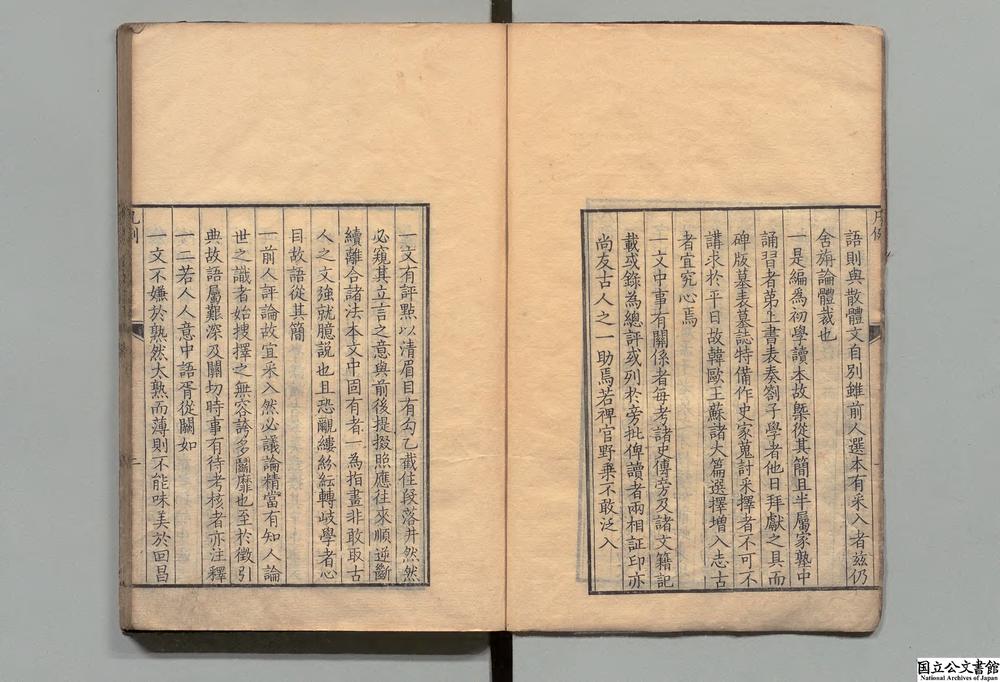 語則與散體文自別雖前人選本有采入者茲仍
舍旃論體裁也
一是編爲初學讀本故槩從其簡且半屬家塾中
誦習者弟上書表奏劄子學者他日拜獻之具而
碑版墓表墓誌特備作史家蒐討采擇者不可不
講求於平日故韓歐王蘇諸大篇選擇增入志古
者宜究心焉
一文中事有關係者每考諸史傳旁及諸文籍記
載或錄為總評或列於旁批俾讀者兩相証印亦
尚友古人之一助焉若稗官野乘不敢泛入
一文有評點以清眉目有勾乙截住段落井然然
必窺其立言之意與前後提掇照應往來順逆斷
續離合諸法本文中固有者一為指畫非敢取古
人之文強就臆說也且恐覼縷紛紜轉岐學者心
目故語從其簡
一前人評論故宜采入然必議論精當有知人論
世之識者始搜擇之無容誇多鬭靡也至於徵引
典故語屬艱深及關切時事有待考核者亦注釋
一二若人人意中語胥從闕如
一文不嫌於熟然大熟而薄則不能味美於回昌
凡例
一
国立公文書館
National Archives of Japan